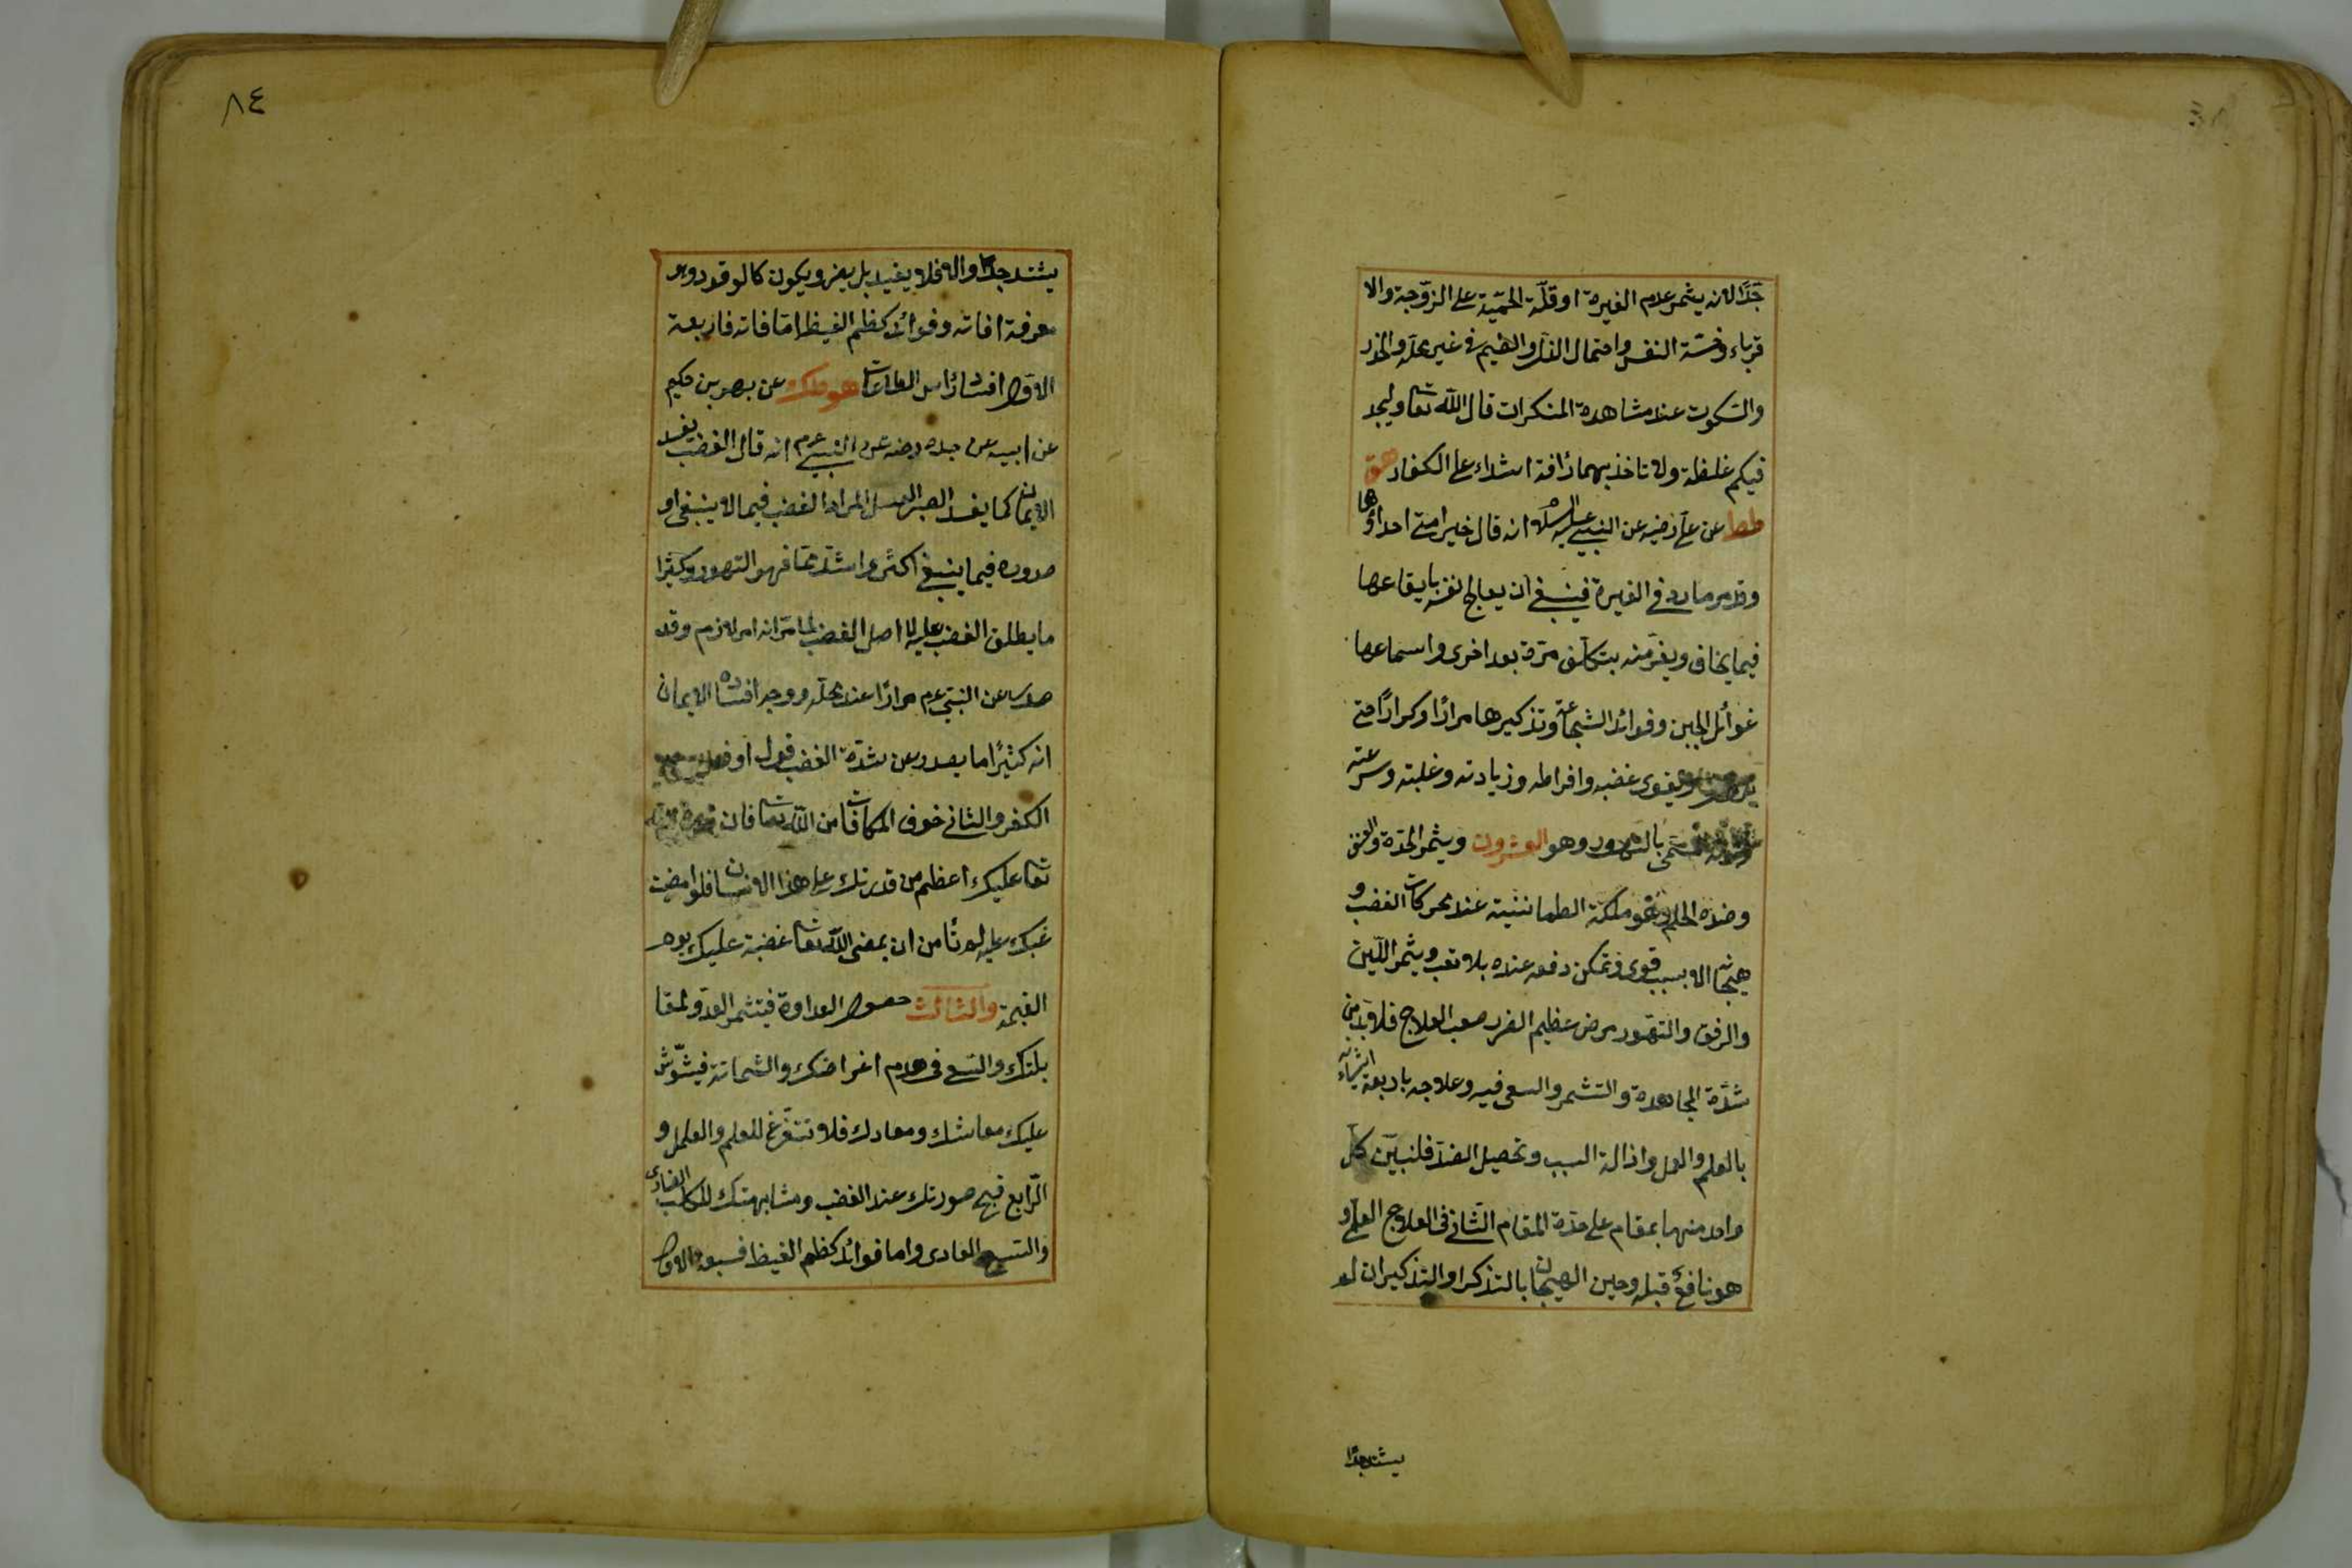 جدًّا لانه يثمر عدم الغيرة او قلّة الحميّة على الزوّجة والا
قرباء وخسّة النفس واحتمال الذلّ والضيم فى غير محلّه والخور
والسّكوت عند مشاهدة المنكرات قال الله تعا وليجد
فيكم غلظة ولا تاخذ بهما رافة اشداء على الكفار هق
طط عن على رضيه عن النبى عليه السلام انه قال خير امتى احداؤها
وقد مر ما ورد فى الغيرة فينبغى ان يعالج نفسه بايقاعها
فيما يخاف ويفر منه بتكلّف مرّة بعد اخرى واسماعها
غوائل الجبن وفوائد الشجاعة وتذكيرها مرارًا وكرارًا حتى
ويقوى غضبه وافراطه وزيادته وغلبته وسرعته
بالتهور وهو العشرون ويثمر الحدّة والعنف
وضدّه الحلم وهو ملكة الطمانينية عند محركات الغضب و
هيجانه الا بسبب قوى وتمكن دفعه عنده بلا تعب ويثمر اللّين
والرفق والتهّور مرض عظيم الضرر صعب العلاج فلا بد من
شدّة المجاهدة والتشمر والسعى فيه وعلاجه باربعة اشياء
بالعلم والعمل وازالة السبب وتحصيل الضدّ فلنبيّن كل
واحد منهما بمقام على حدة المقام الثّانى فى العلاج العلمى و
هو نافع قبله وحين الهيجان بالتذكر او التذكير ان لم
يشتد جدًا
٨٤
يشتد جدًا والا فلا يفيد بل يضر ويكون كالوقود وهو
معرفة افاته وفوائد كظم الغيظ امّا فاته فاربعة
الاوّل افساد راس الطاعات هو عن بهز بن حكيم
عن ابيه عن جده رضه عن النبى عم انه قال الغضب يفسد
الايمان كما يفسد الصبر العسل المراد الغضب فيما لا ينبغى او
صدوره فيما ينبغى اكثر واشد ممّا فهو التهور وكثيرا
ما يطلق الغضب عليه لا اصل الغضب لما مرّ انه امر لازم وقد
صدر عن النبىّ عم مرارًا عند محلّه ووجه افساده الايمان
انه كثيرًا ما يصدر عن شدّة الغضب قول او فعل
الكفر والثانى خوف المكافات من الله تعا فان
تعا عليك اعظم من قدرتك على هذا الانسان فلو امضيت
غضبك عليه لم تأمن ان يمضى الله تعا غضبة عليك يوم
القيمة والثالث حصول العداوة فيتشمر العدّو لمقا
بلتك والسّعى فى هدم اغراضك والشماتة فيشوّش
عليك معاشك ومعادك فلا تتفرّغ للعلم والعلمل و
الرّابع قبح صورتك عند الغضب ومشابهتك للكلب الضارى
والسبع العادى واما فوائد كظم الغيظ فسبعة الاول